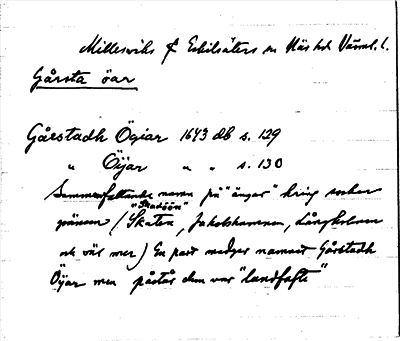 Millesviks & Eskilsäters sn Näs hd Värml. l.
Gårsta öar
Gårstadh Ögiar 1643 db s. 129
" Öijar " " s. 130
Sammanfattande namn på "ängar" kring socken
"Skatöön"
gränsen (Skaten, Jakobshamnen, Långholmen
ok väl mer) En part medger namnet Gårstadh
Öijar men påstår dem var "landfaste"